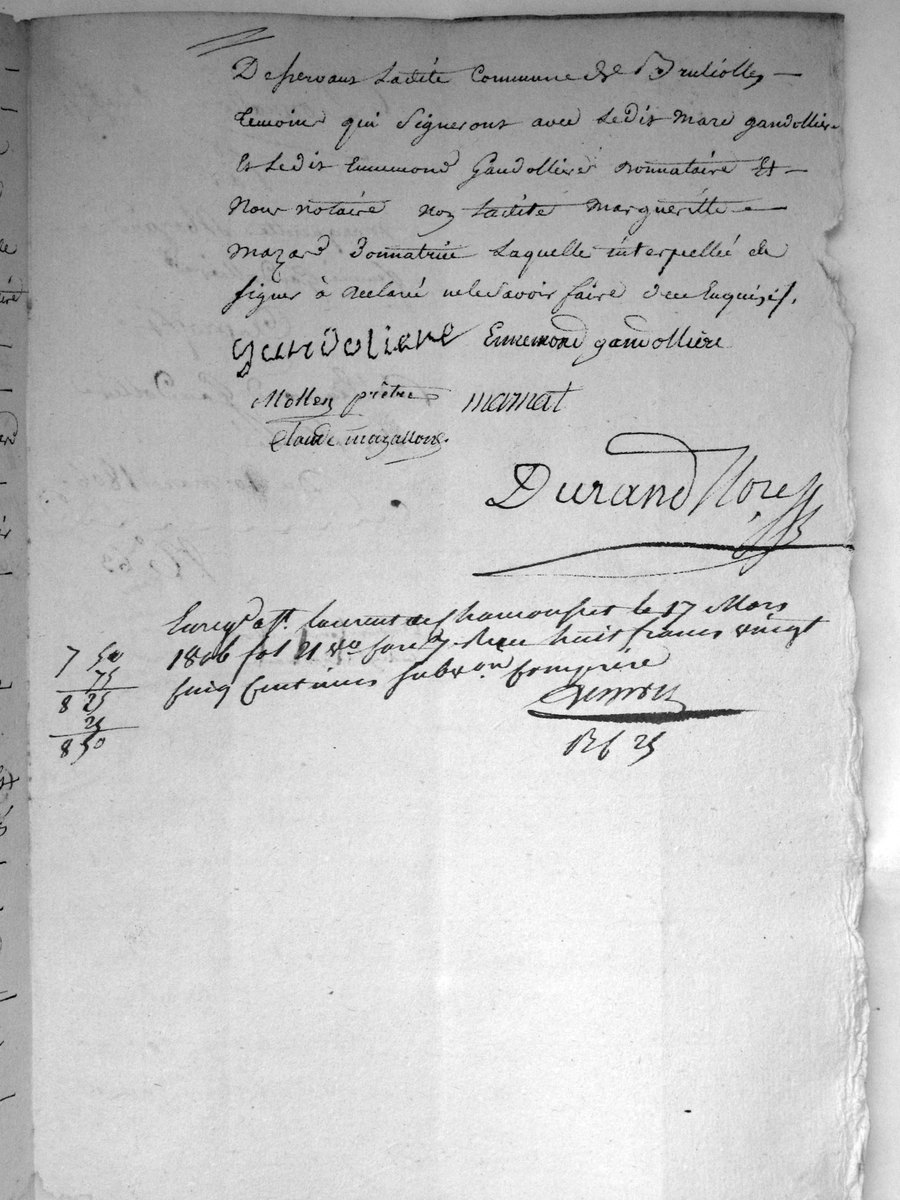 Desservant Ladite Commune de Brulioles
temoins qui signeront avec Ledit Marc gandollière
Et Ledit Ennemond Gandollière Donnataire Et
Nous notaire non Ladite Margueritte
Mazard Donnatrice Laquelle interpellée de
signer à declaré ne le savoir faire de ce Enquise.
gandoliere Ennemond gandollière
Mollen prêtre marnat
Claude mazallon
Durand Nore
Enreg. à St. Laurent de Chamousset le 17 Mars
1806 fol 21 vo Reçu huit francs vingt
cinq Centimes subvon. Comprise
7 50
75
8 25
25
8 50
25